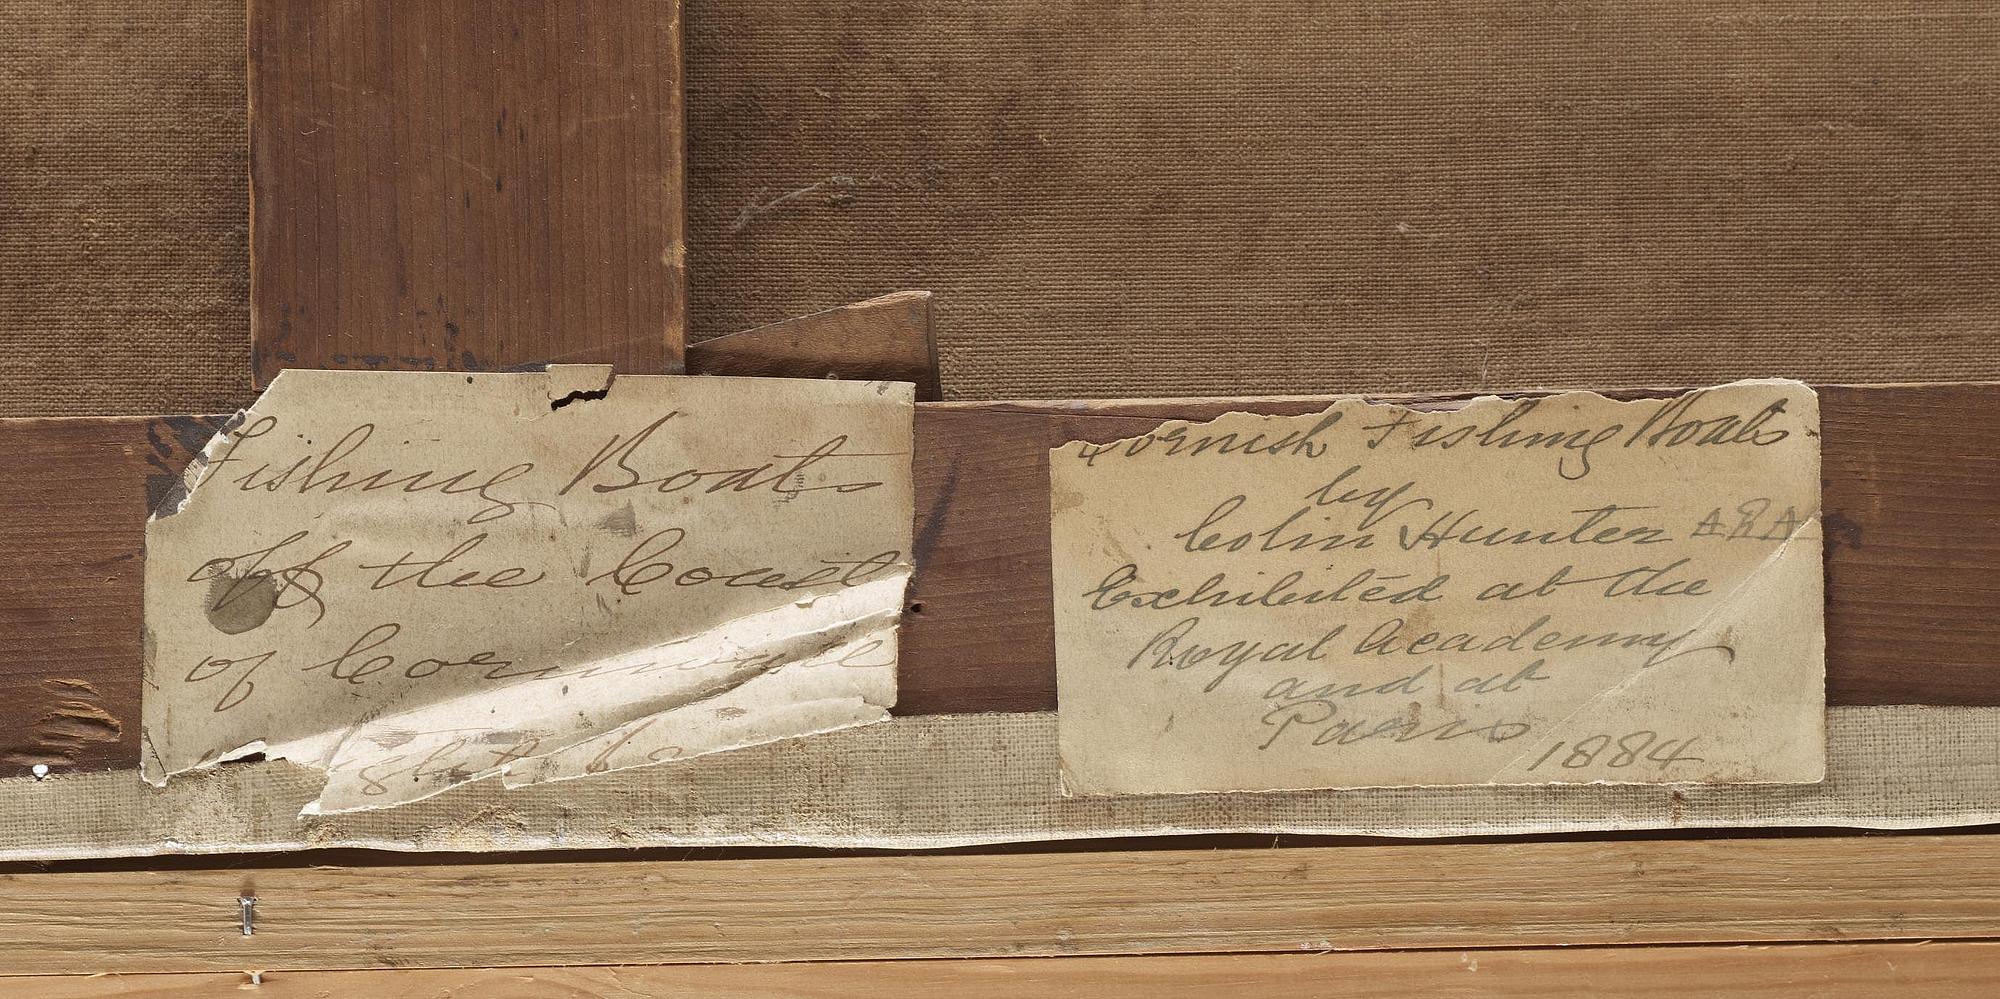 Fishing Boats
off the Coast
of Cornwall
Cornish Fishing Boats
by
Colin Hunter ARA
Exhibited at the
Royal Academy
and at
Paris
1884